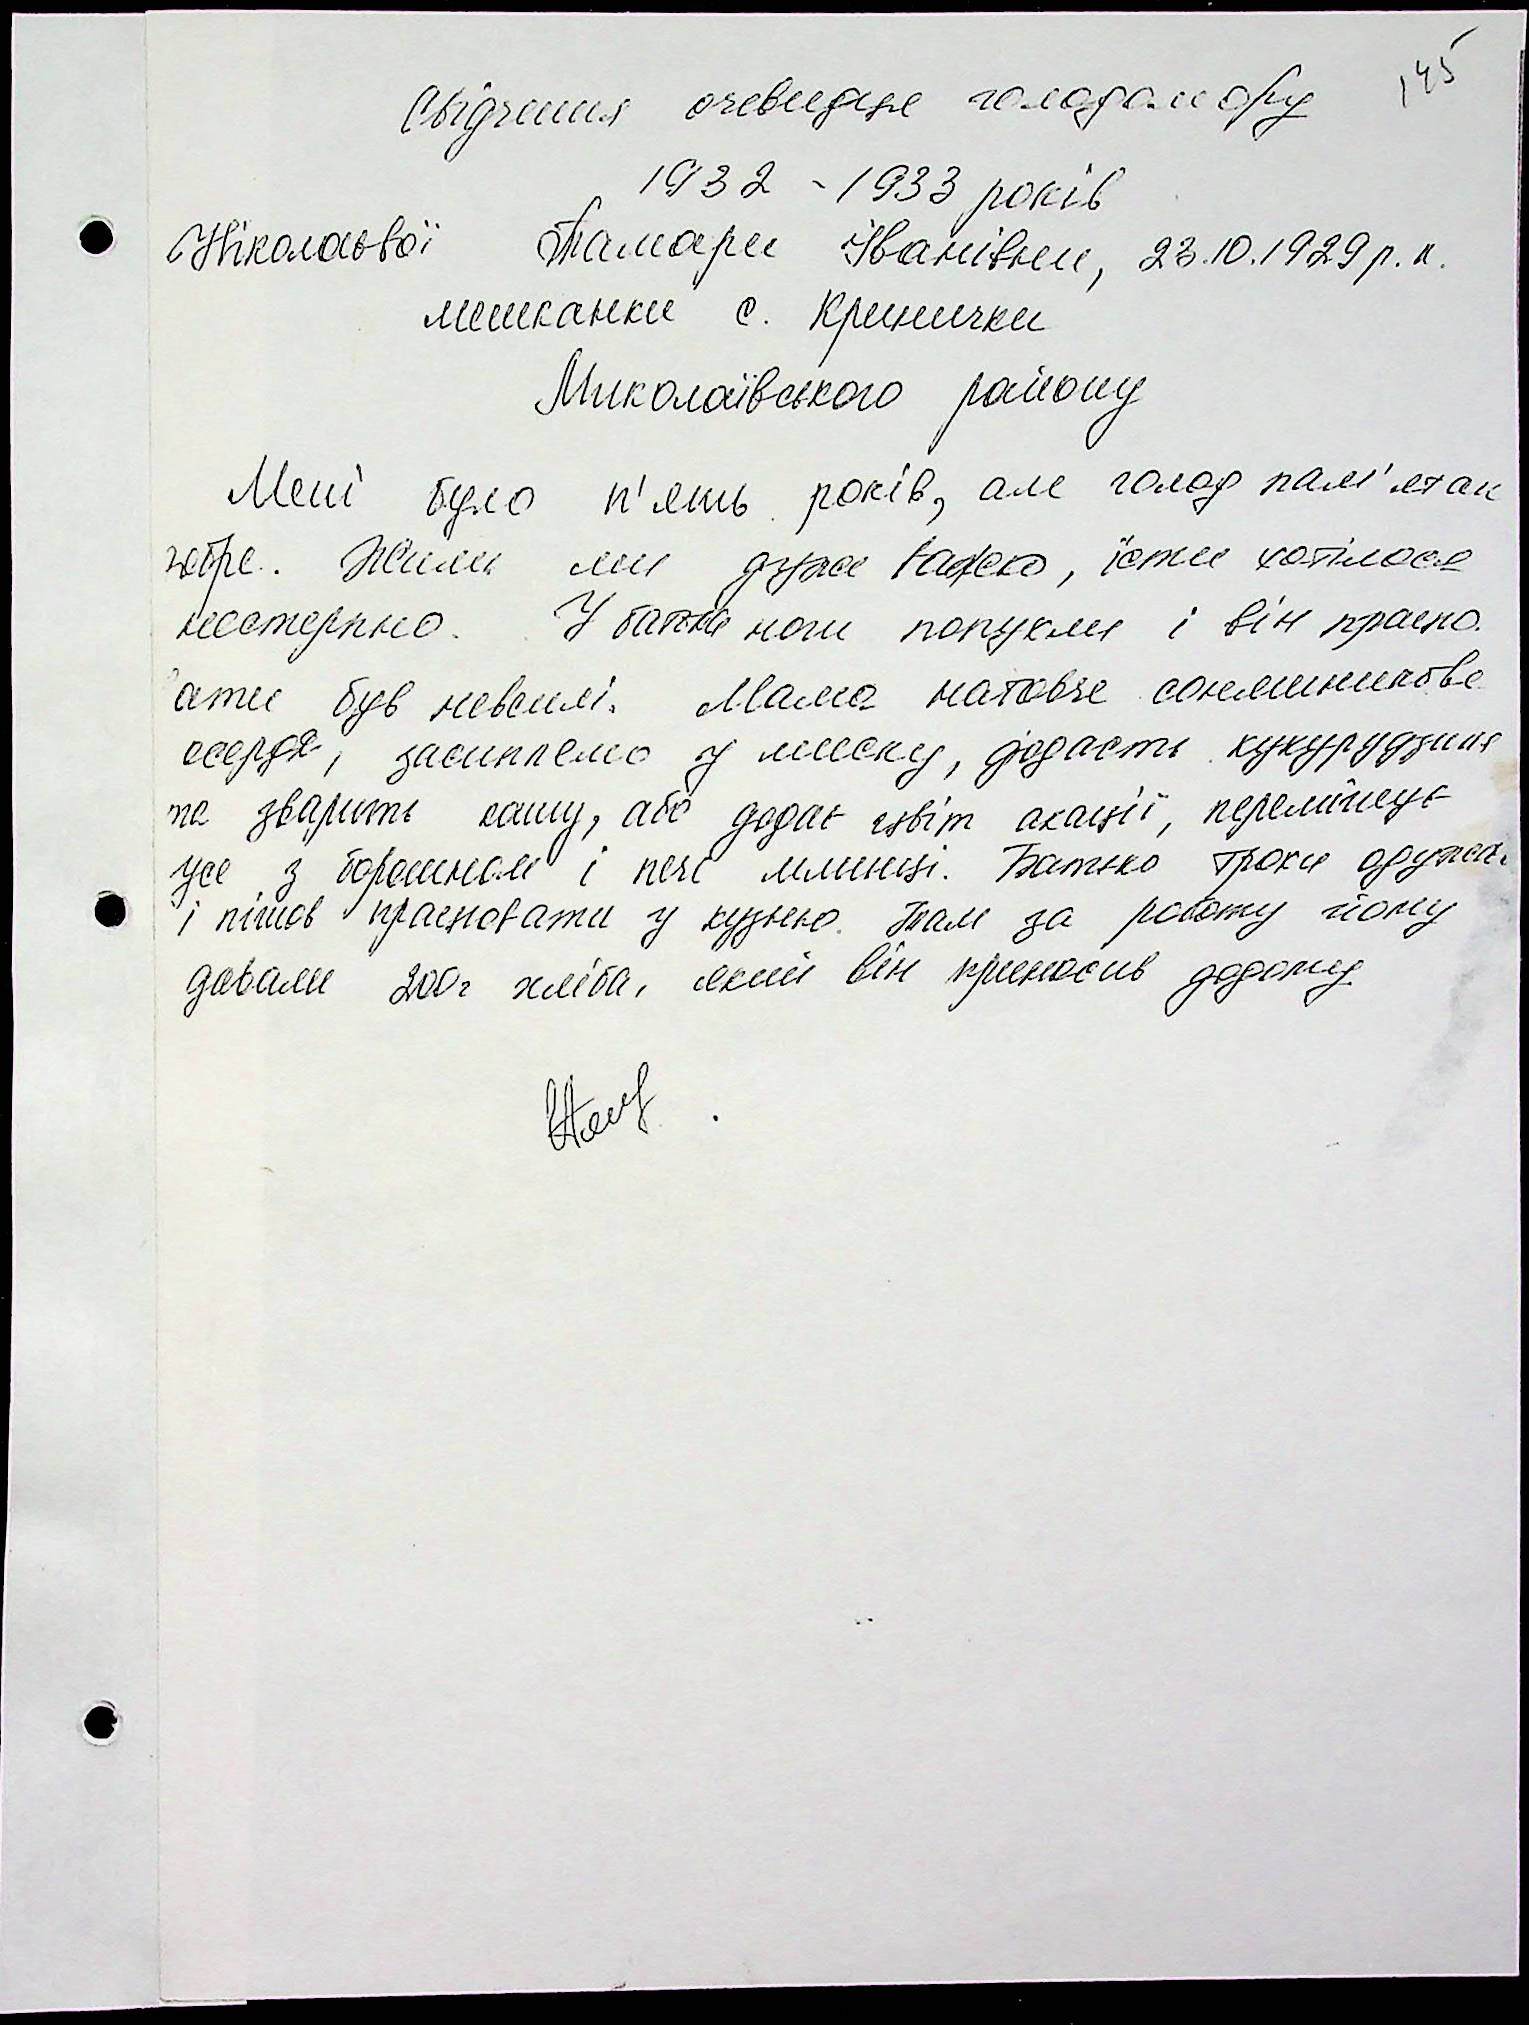 145
Свідчення очевидця голодомору
1932 - 1933 років
Ніколаєвої Тамари Іванівни, 23.10.1929 р. н.
мешканки с. Кринички
Миколаївського району
Мені було п'ять років, але голод пам'ятаю
добре. Жили ми дуже важко, їсти хотілося
нестерпно. У батька ноги попухли і він працю
ати був невсилі. Мама натовче соняшникове
осердя, засиплемо у миску, додасть кукурудзиня
та зварить кашу, або додає цвіт акації, перемішує
усе з борошном і пече млинці. Батько трохи одужав
і пішов працювати у кузню. Там за роботу йому
давали 200г хліба, який він приносив додому